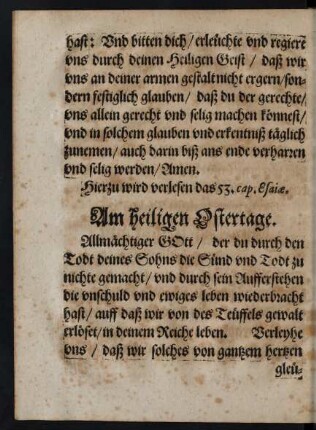 hast: Vnd bitten dich / erleüchte vnd regiere
vns durch deinen Heiligen Geist / daß wir
vns an deiner armen gestalt nicht ergern / son-
dern festiglich glauben / daß du der gerechte /
vns allein gerecht vnd selig machen könnest /
vnd in solchem glauben vnd erkentnuß täglich
zunemen / auch darin biß ans ende verharren
vnd selig werden / Amen.
Hierzu wird verlesen das 53. cap. Esaiæ.
Am heiligen Ostertage.
Allmächtiger GOtt / der du durch den
Todt deines Sohns die Sünd vnd Todt zu
nichte gemacht / vnd durch sein Aufferstehen
die vnschuld vnd ewiges leben wiederbracht
hast / auff daß wir von des Teüffels gewalt
erlöset / in deinem Reiche leben. Verleyhe
vns / daß wir solches von gantzem hertzen
gleü-